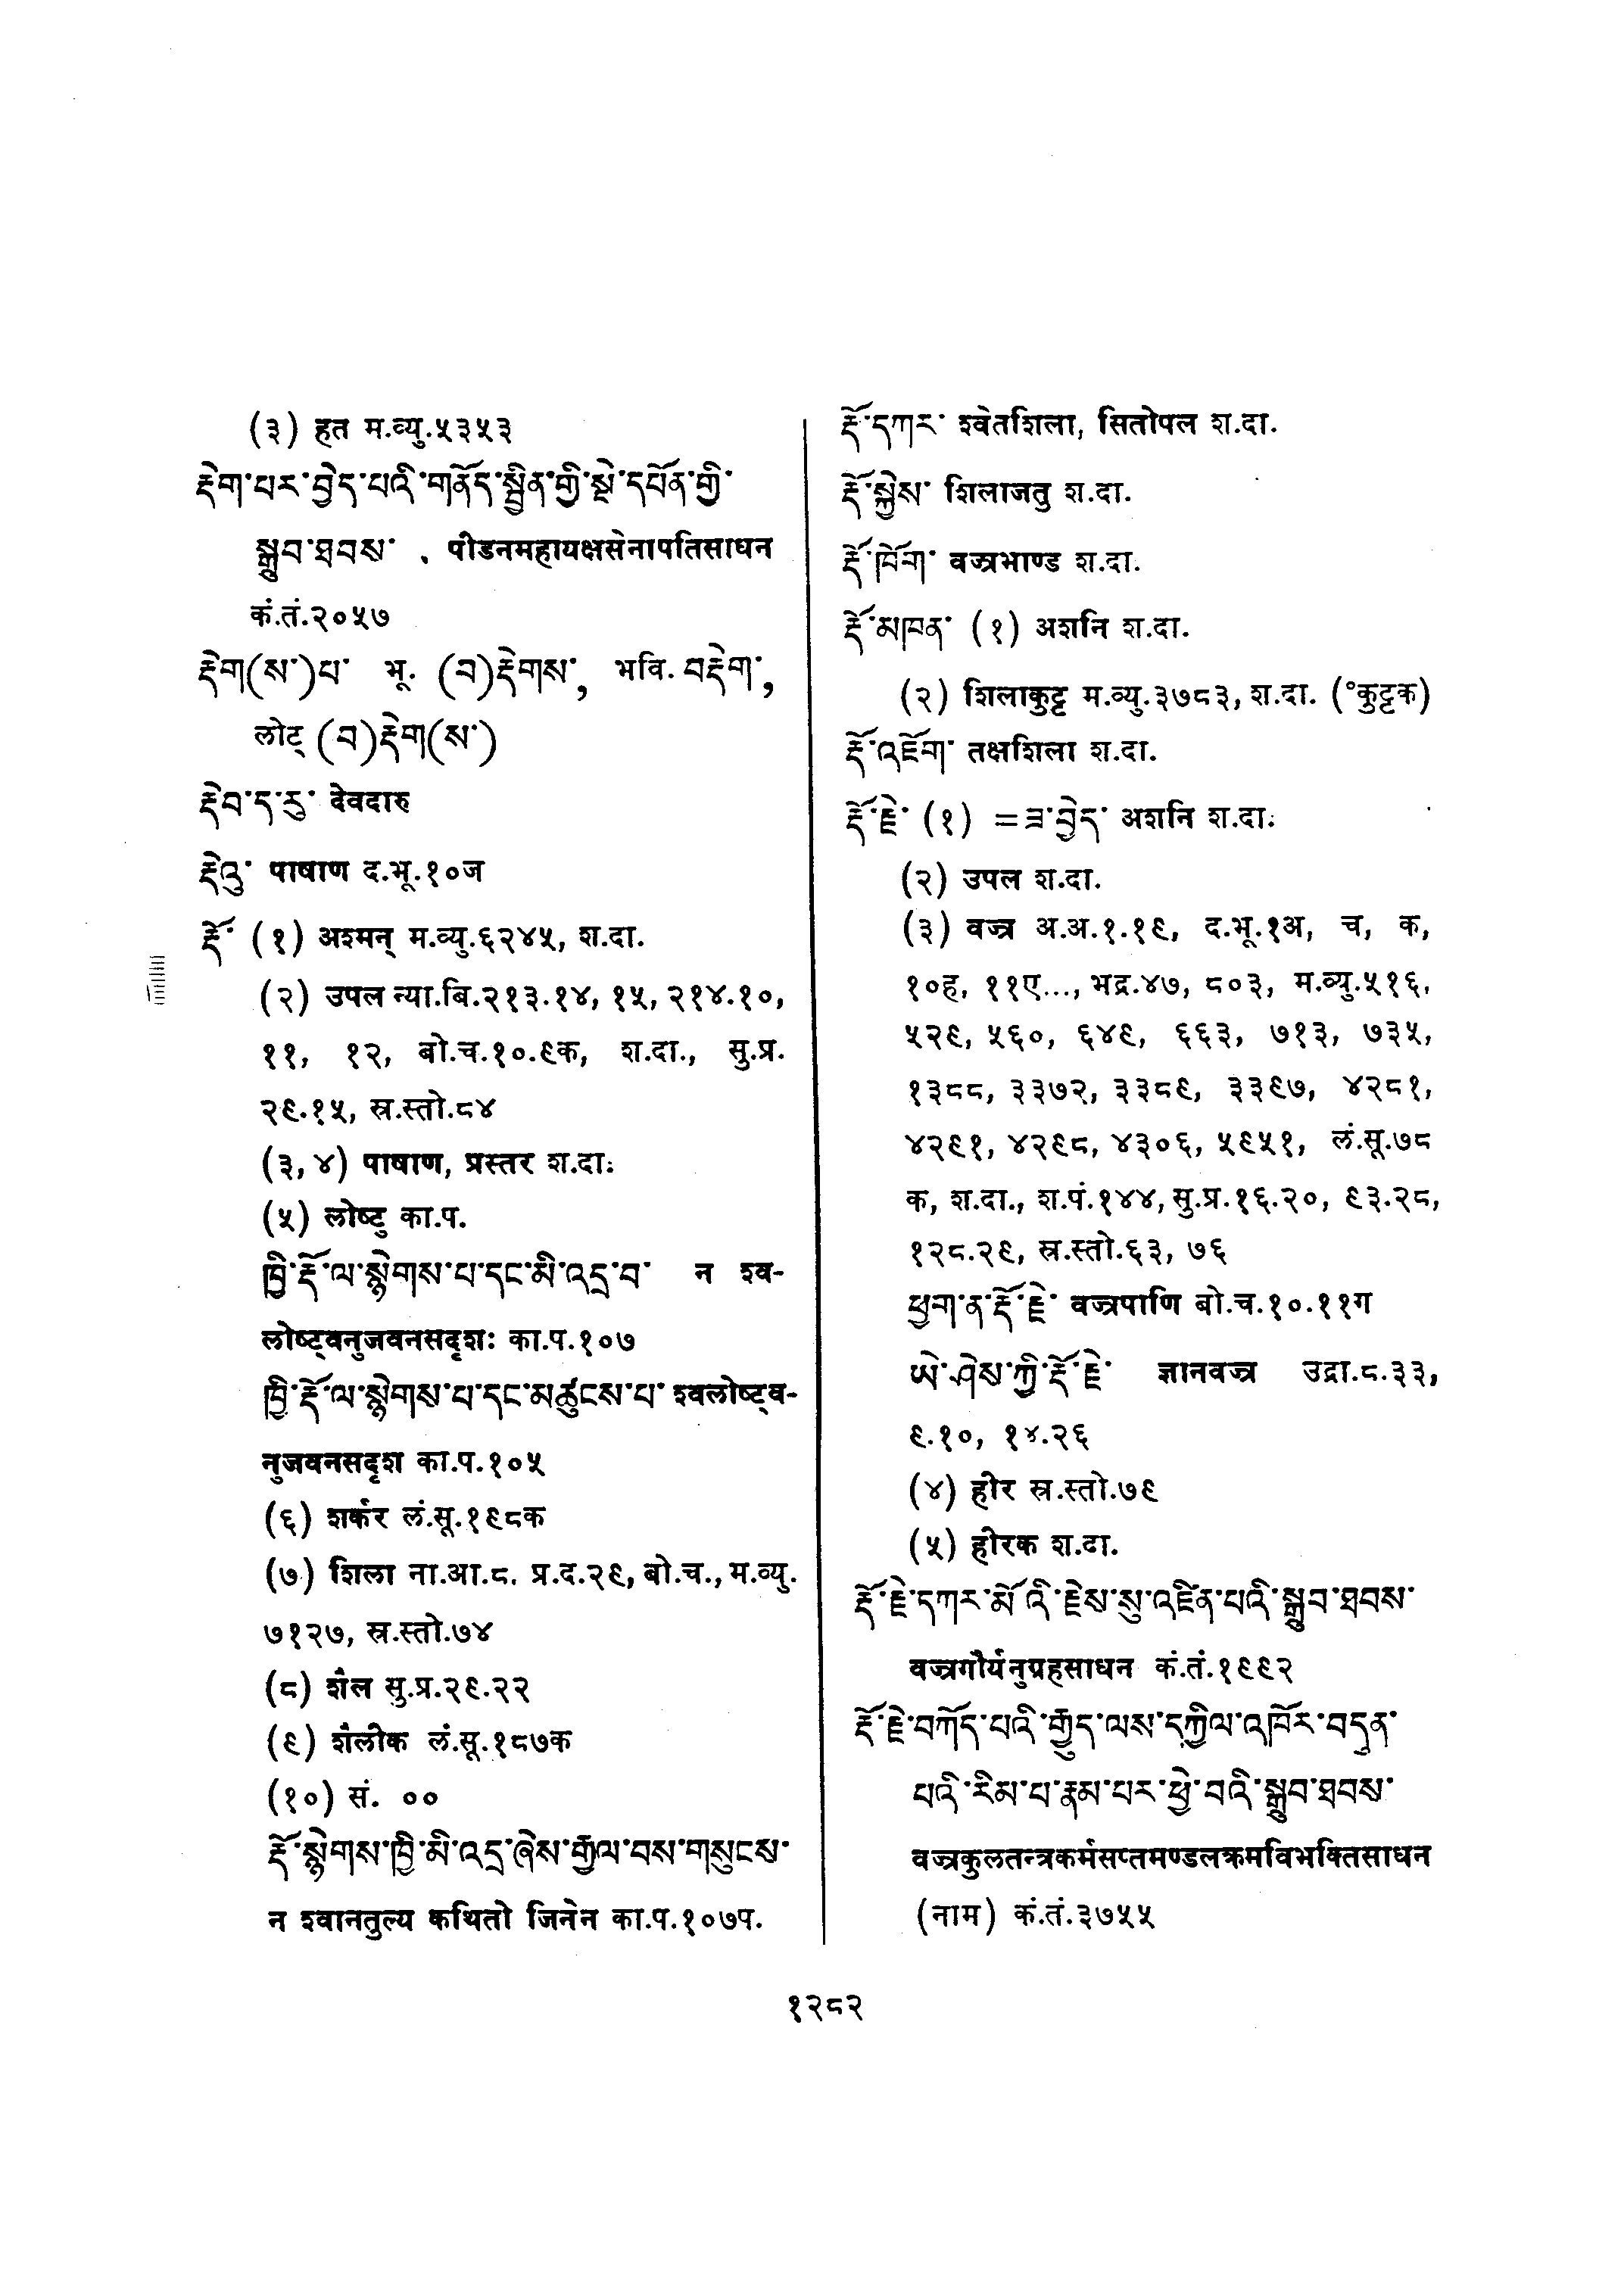 (३) हत म.व्यु.५३५३
རྡེག་པར་བྱེད་པའི་གནོད་སྦྱིན་གྱི་སྡེ་དཔོན་གྱི་
སྒྲུབ་ཐབས་ . पीडनमहायक्षसेनापतिसाधन
कं.तं.२०५७
རྡེག(ས་)པ་ भू. (བ)རྡེགས་, भवि. བརྡེག་,
लोट् (བ)རྡེག(ས་)
རྡེབ་ད་རུ་ देवदारु
རྡེའུ་ पाषाण द.भू.१०ज
རྡོ་ (१) अश्मन् म.व्यु.६२४५, श.दा.
(२) उपल न्या.बि.२१३.१४, १५, २१४.१०,
११, १२, बो.च.१०.९क, श.दा., सु.प्र.
२९.१५, स्र.स्तो.८४
(३, ४) पाषाण, प्रस्तर श.दा.
(५) लोष्टु का.प.
ཁྱི་རྡོ་ལ་སྙེགས་པ་དང་མི་འདྲ་བ་ न श्व-
लोष्ट्वनुजवनसदृशः का.प.१०७
ཁྱི་རྡོ་ལ་སྙེགས་པ་དང་མཚུངས་པ་ श्वलोष्ट्व-
नुजवनसदृश का.प.१०५
(६) शर्कर लं.सू.१९८क
(७) शिला ना.आ.८. प्र.द.२९, बो.च., म.व्यु.
७१२७, स्र.स्तो.७४
(८) शैल सु.प्र.२९.२२
(९) शैलीक लं.सू.१८७क
(१०) सं. ००
རྡོ་སྙེགས་ཁྱི་མི་འདྲ་ཞེས་རྒྱལ་བས་གསུངས་
न श्वानतुल्य कथितो जिनेन का.प.१०७प.
རྡོ་དཀར་ श्वेतशिला, सितोपल श.दा.
རྡོ་སྐྱེས་ शिलाजतु श.दा.
རྡོ་ཁོག་ वज्रभाण्ड श.दा.
རྡོ་མཁན་ (१) अशनि श.दा.
(२) शिलाकुट्ट म.व्यु.३७८३, श.दा. (°कुट्टक)
རྡོ་འཇོག་ तक्षशिला श.दा.
རྡོ་རྗེ་ (१) =ཟ་བྱེད་ अशनि श.दा.
(२) उपल श.दा.
(३) वज्र अ.अ.१.१९, द.भू.१अ, च, क,
१०ह, ११ए..., भद्र.४७, ८०३, म.व्यु.५१६,
५२९, ५६०, ६४९, ६६३, ७१३, ७३५,
१३८८, ३३७२, ३३८९, ३३९७, ४२८१,
४२९१, ४२९८, ४३०६, ५९५१, लं.सू.७८
क, श.दा., श.पं.१४४, सु.प्र.१६.२०, ९३.२८,
१२८.२९, स्र.स्तो.६३, ७६
ཕྱག་ན་རྡོ་རྗེ་ वज्रपाणि बो.च.१०.११ग
ཡེ་ཤེས་ཀྱི་རྡོ་རྗེ་ ज्ञानवज्र उद्रा.८.३३,
९.१०, १४.२६
(४) हीर स्र.स्तो.७९
(५) हीरक श.दा.
རྡོ་རྗེ་དཀར་མོའི་རྗེས་སུ་འཛིན་པའི་སྒྲུབ་ཐབས་
वज्रगौर्यनुग्रहसाधन कं.तं.१९९२
རྡོ་རྗེ་བཀོད་པའི་རྒྱུད་ལས་དཀྱིལ་འཁོར་བདུན་
པའི་རིམ་པ་རྣམ་པར་ཕྱེ་བའི་སྒྲུབ་ཐབས་
वज्रकुलतन्त्रकर्मसप्तमण्डलक्रमविभक्तिसाधन
(नाम) कं.तं.३७५५
१२८२